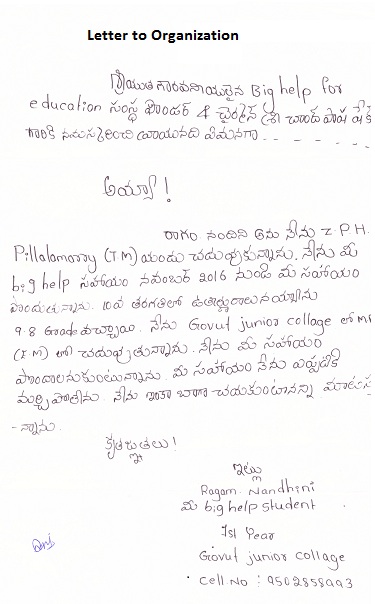 Letter to Organization
శ్రీయుత గౌరవనీయులైన Big help for
education సంస్థ ఫౌండర్ & ఛైర్మెన్ శ్రీ చాంద్ పాషా షేక్
గారికి నమస్కరించి వ్రాయునది ఏమనగా
అయ్యా!
రాగం నందిని అను నేను Z.P.H.
Pillalamarry (T.M) యందు చదువుకున్నాను. నేను మీ
big help సహాయం నవంబర్ 2016 నుండి మీ సహాయం
పొందుతున్నాను. 10వ తరగతిలో ఉత్తీర్ణురాలునయ్యాను
9.8 Grade వచ్చాయి. నేను Govut junior collage లో
(E.M) లో చదువుతున్నాను. నేను మీ సహాయం
పొందాలనుకుంటున్నాను. మీ సహాయం నేను ఎప్పటికి
మర్చిపోలేను. నేను ఇంకా బాగా చదుకుంటానని మాటిస్తు
-న్నాను.
కృతజ్ఞతలు!
ఇట్లు
Ragam. Nandhini
మీ big help student
1st Year
Govut junior collage
Cell.No : 9502858993